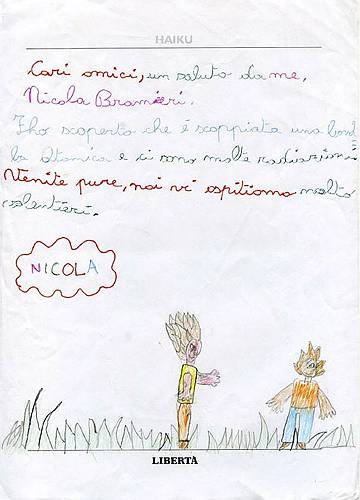 HAIKU
Cari amici, un saluto da me,
Nicola Bramieri.
Iho scoperto che è scoppiata una bom
ba atomica e ci sono molte radiazioni.
Venite pure, noi vi ospitiamo molto
volentieri.
NICOLA
LIBERTÀ